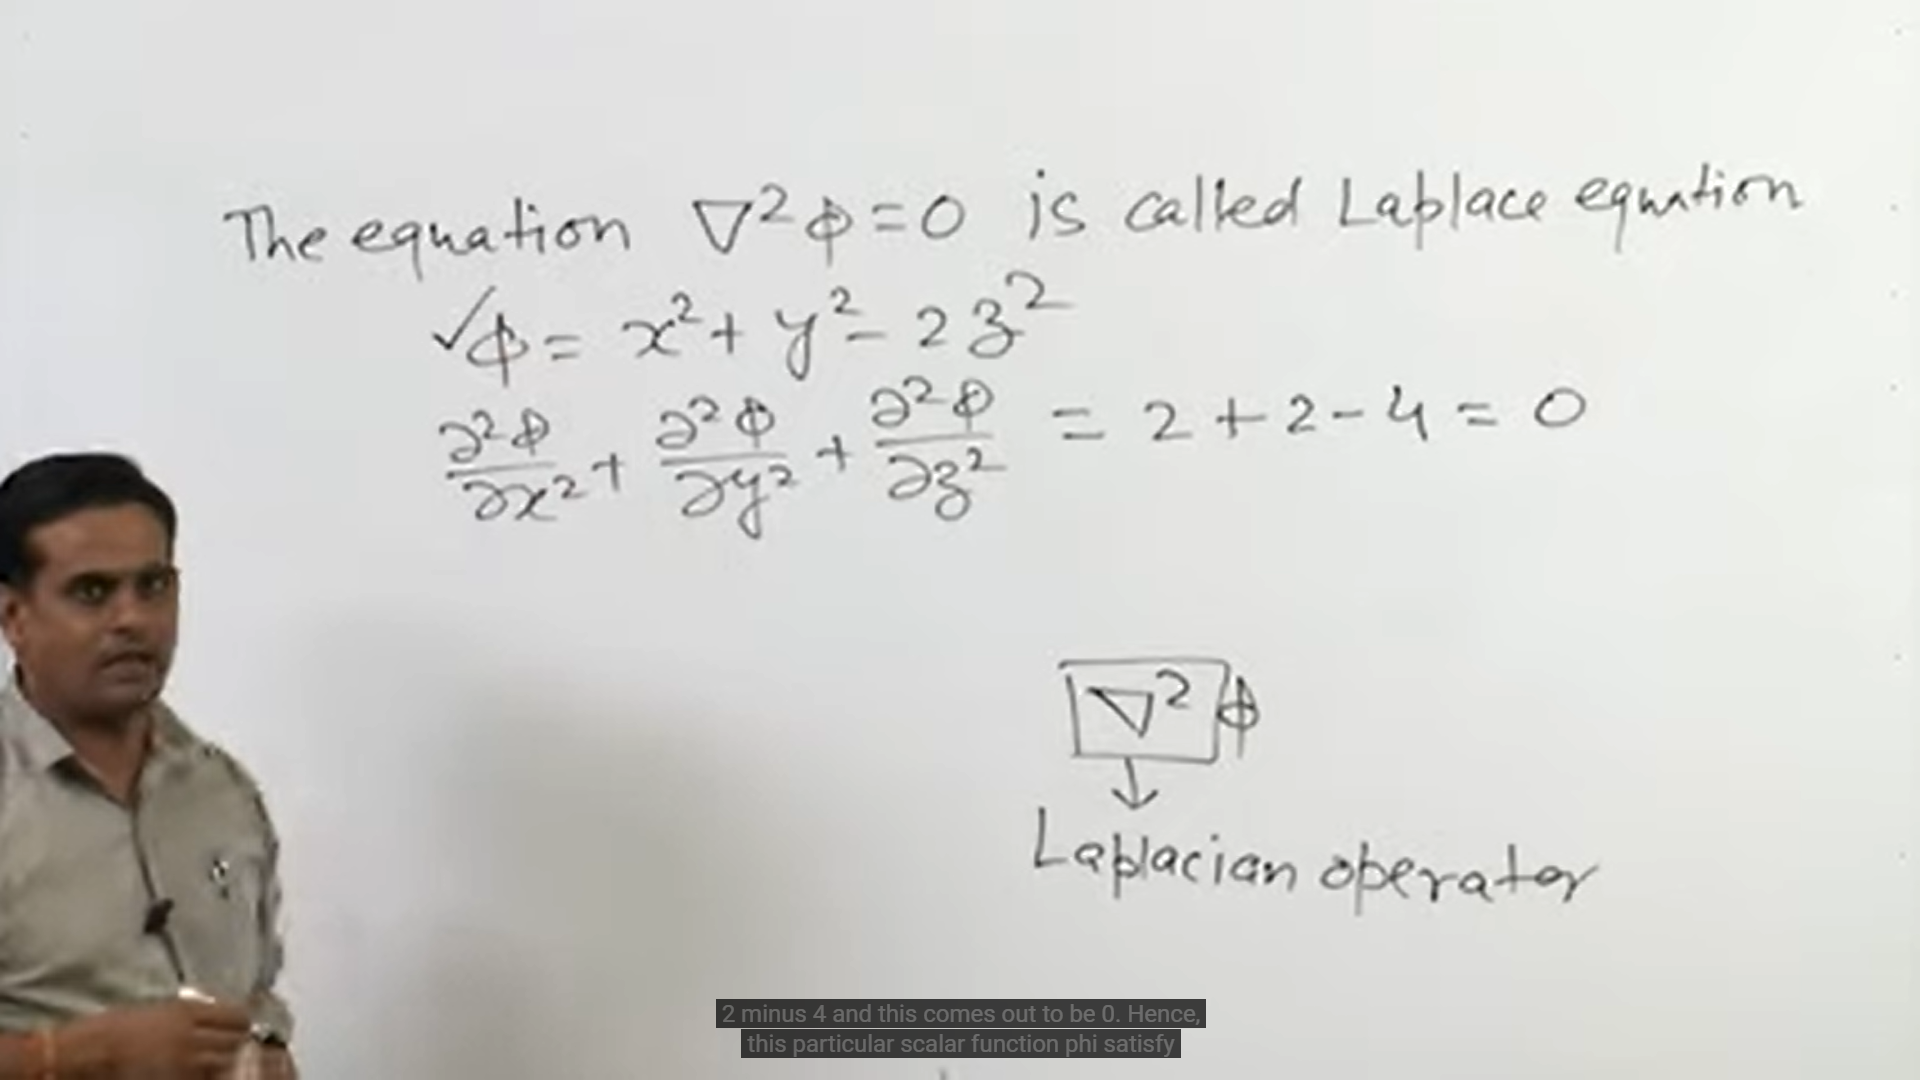 The equation ∇²ϕ=0 is called Laplace equation
✓ϕ = x² + y² - 2z²
∂²ϕ/∂x² + ∂²ϕ/∂y² + ∂²ϕ/∂z² = 2+2-4=0
∇²ϕ
↓
Laplacian operator
2 minus 4 and this comes out to be 0. Hence,
this particular scalar function phi satisfy